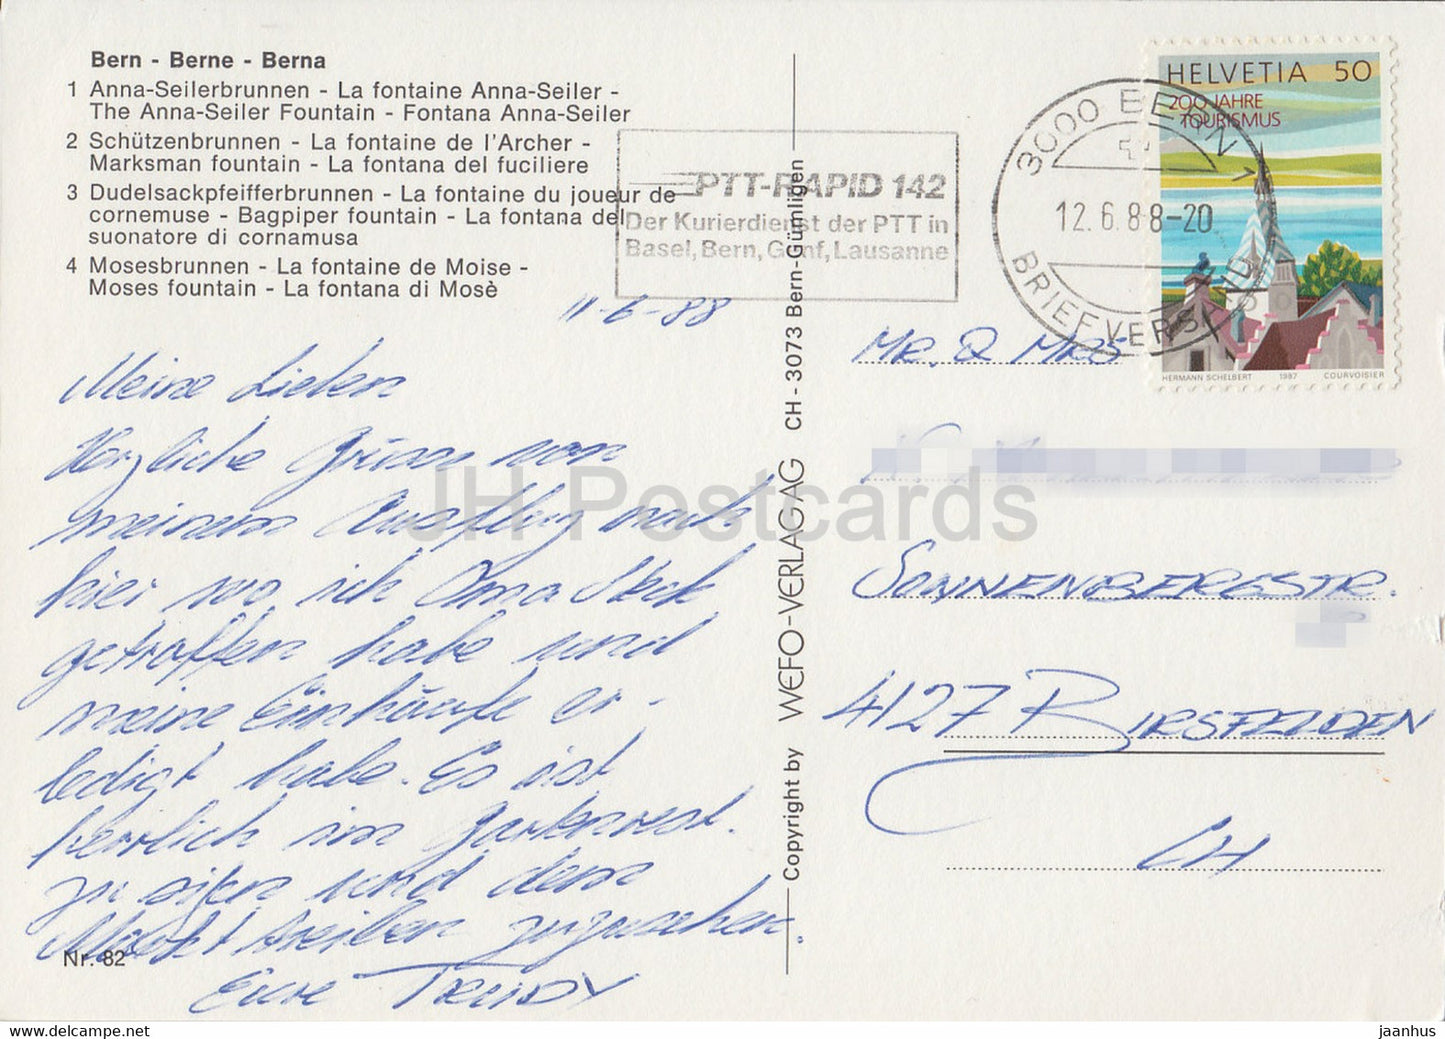 Bern - Berne - Berna
1 Anna-Seilerbrunnen - La fontaine Anna-Seiler -
The Anna-Seiler Fountain - Fontana Anna-Seiler
2 Schützenbrunnen - La fontaine de l'Archer -
Marksman fountain - La fontana del fuciliere
3 Dudelsackpfeifferbrunnen - La fontaine du joueur de
cornemuse - Bagpiper fountain - La fontana del
suonatore di cornamusa
4 Mosesbrunnen - La fontaine de Moise -
Moses fountain - La fontana di Mosè
11-6-88
Meine Lieben
Herzliche Grüsse von
meinem Ausflug nach
hier wo ich Oma
getroffen habe und
meine Einkäufe er-
ledigt habe. Es ist
herrlich im Gartenrest.
zu sitzen und dem
Markt treiben zuzusehen.
Eure TRUDY
Nr. 82
Copyright by WEFO-VERLAG AG CH - 3073 Bern-Gümligen
PTT-RAPID 142
Der Kurierdienst der PTT in
Basel, Bern, Genf, Lausanne
3000 BERN 1
12.6.88-20
BRIEFVERSAND
HELVETIA 50
200 JAHRE
TOURISMUS
HERMANN SCHELBERT 1987 COURVOISIER
MR. & MRS
SONNENBERGSTR.
4127 BIRSFELDEN
CH
JH Postcards
jaanhus